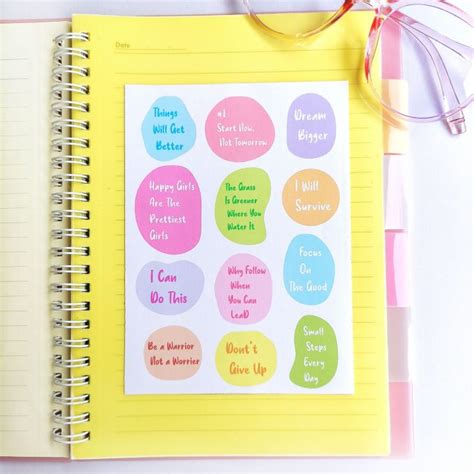 Date
Things
Will Get
Better
#1
Start Now,
Not Tomorrow
Dream
Bigger
Happy Girls
Are The
Prettiest
Girls
The Grass
Is Greener
Where You
Water It
I Will
Survive
I Can
Do This
Why Follow
When
You Can
LeaD
Focus
On
The Good
Be a Warrior
Not a Worrier
Don't
Give Up
Small
Steps
Every
Day